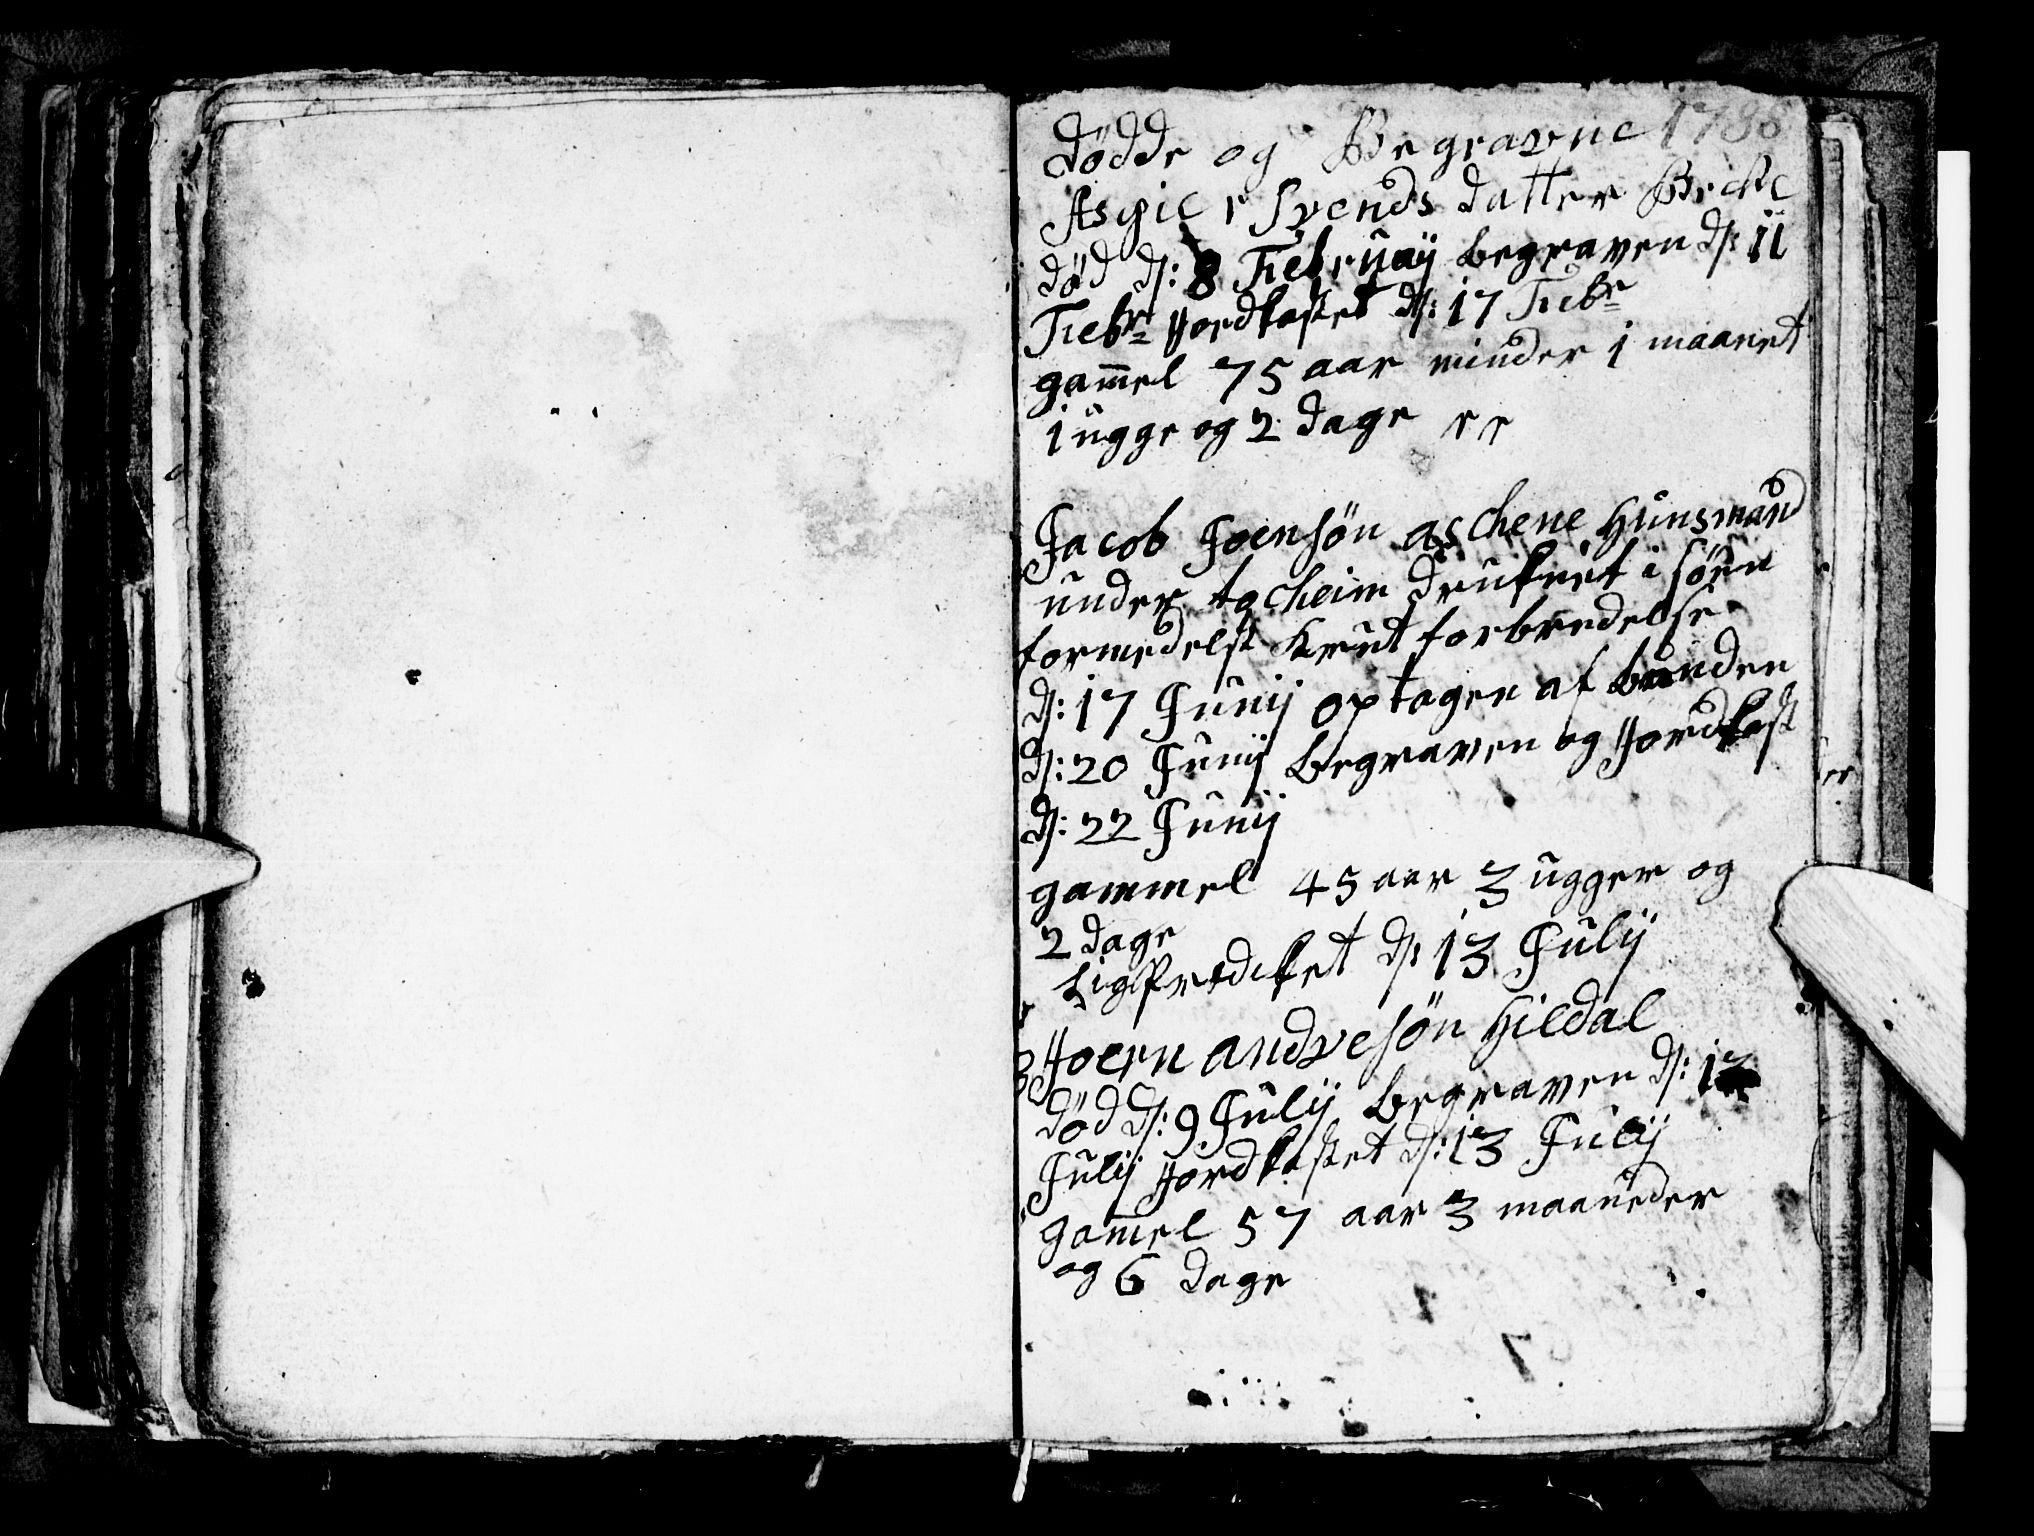 Dödde og Begravne 1786
Asgie r Svends datter Becke
död ds: 8 Februaij begraven ds: 11
Febr Jordkastet ds: 17 Febr
gam̄el 75 aar minder 1 maanet
1 ugge og 2 dage
Jacob Joensön aschene Hunsmand
under tocheim druknet i söen
formedelst Krut forbredelse
ds: 17 Junij optagen af bunden
ds: 20 Junij begraven og Jordkast
ds: 22 Junij
gammel 45 aar 3 ugger og
2 dage
Ligprediket ds 13 Julij
Joern andvesön Hildal
död ds: 9 Julij begraven ds: 13
Julij Jordkastet ds: 13 Julij
gam̄el 57 aar 3 maaneder
og 6 dage